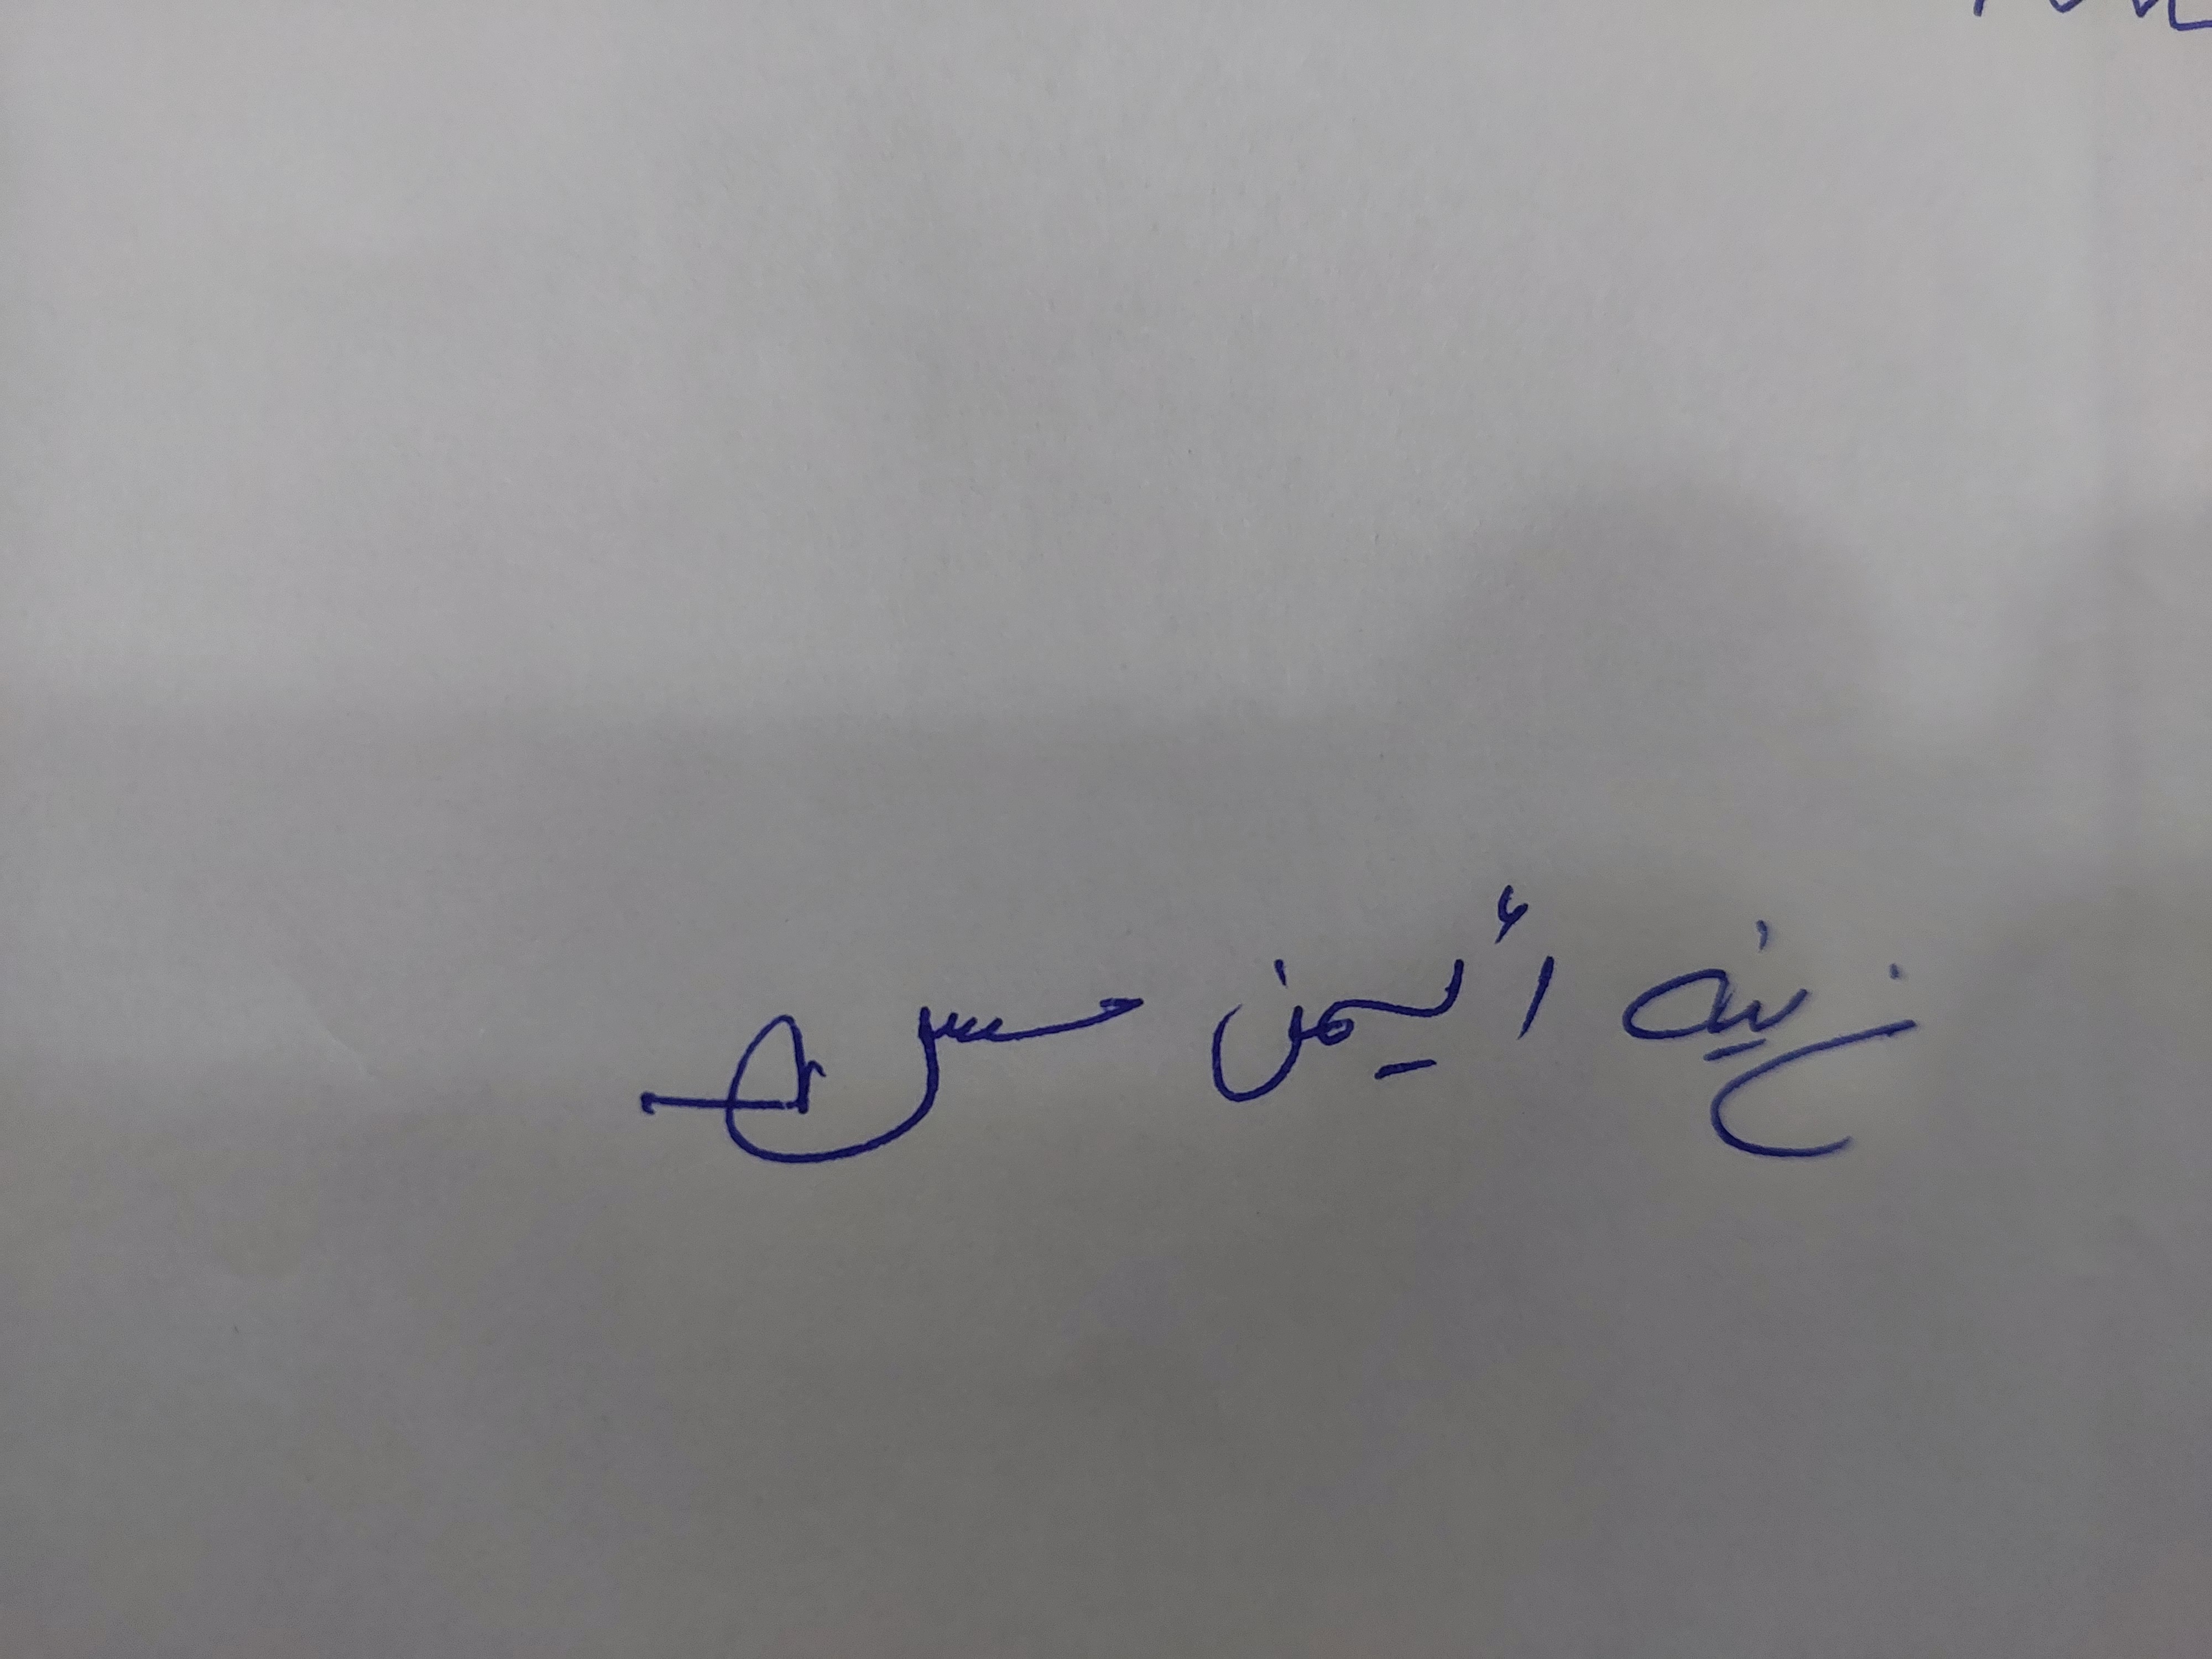 زينه أيمن حسن